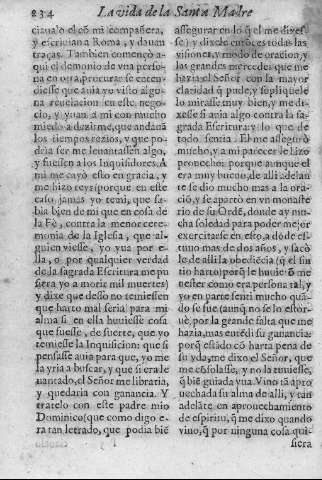 234 La vida de la Santa Madre
ciaualo el cõ mi compañera,
y escriuian a Roma, y dauan
traças. Tambien començò a-
qui el demonio de vna perso-
na en otra, procurar se enten-
diesse que auia yo visto algu-
na reuelacion en este nego-
cio, y yuan a mi con mucho
miedo a dezirme, que andauã
los tiempos rezios, y que po-
dria ser me leuantassen algo,
y fuessen a los Inquisidores. A
mi me cayò esto en gracia, y
me hizo reyr: porque en este
caso jamas yo temi, que sa-
bia biẽ de mi que en cosa de
la Fè, contra la menor cere-
monia de la Iglesia, que al-
guien viesse, yo yua por e-
lla, o por qualquier verdad
de la sagrada Escritura me pu
siera yo a morir mil muertes)
y dixe que desso no temiessen
que harto mal seria para mi
alma si en ella huuiesse cosa
que fuesse, de suerte, que yo
temiesse la Inquisicion: que si
pensasse auia para que, yo me
la yria a buscar, y que si era le
uantado, el Señor me libraria,
y quedaria con ganancia. Y
tratèlo con este padre mio
Dominico (que como digo e-
ra tan letrado, que podia biẽ
assegurar en lo q̃ el me dixes-
se) y dixele entõces todas las
visiones, y modo de oracion, y
las grandes mercedes que me
hazia el Señor con la mayor
claridad q̃ pude, y supliquele
lo mirasse muy bien, y me di-
xesse si auia algo contra la sa-
grada Escritura: y lo que de
todo sentia. El me assegurò
mucho, y a mi parecer le hizo
prouecho: porque aunque el
era muy bueno, de alli adelan
te se dio mucho mas a la ora-
ciõ, y se apartò en vn monaste
rio de su Ordẽ, donde ay mu-
cha soledad para poder mejor
exercitarse en esto, a dõde es-
tuuo mas de dos años, y sacò
le de alli la obediẽcia (q̃ el sin
tio harto) porq̃ le huuieõ me
nester como era persona tal, y
yo en parte senti mucho quã-
do se fue (aunq̃ no se lo estor-
uè) por la grande falta que me
hazia, mas entẽdi su ganancia:
porq̃ estãdo cõ harta pena de
su yda, me dixo el Señor, que
me cõsolasse, y no la tuuiesse,
q̃ biẽ guiado yua. Vino tã apro
uechada su alma de alli, y tan
adelãte en aprouechamiento
de espiritu, q̃ me dixo quando
vino, q̃ por ninguna cosa qui-
siera